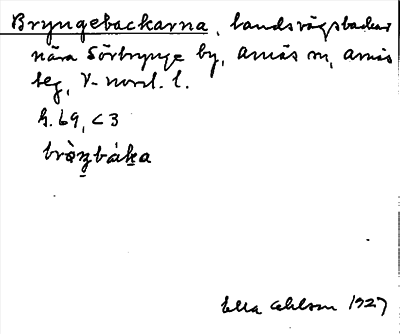 Bryngebackarna, landsvägsbackar
nära Sörbrynge by, Arnäs sn, Arnäs
tlg, V-norrl. l.
h. 69, C 3
bakа
Ella Ohlson 1927